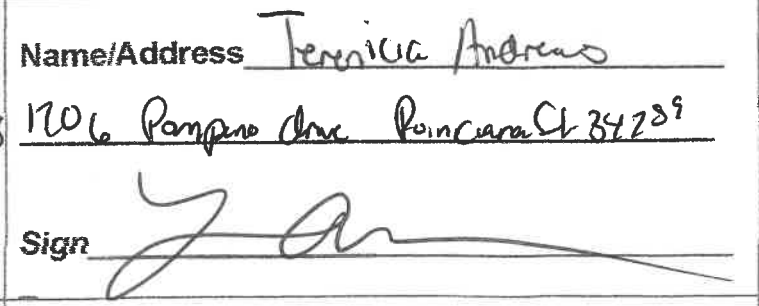 Name/Address Terenicia Andrews
1206 Pampano drive Poinciana FL 34789
Sign